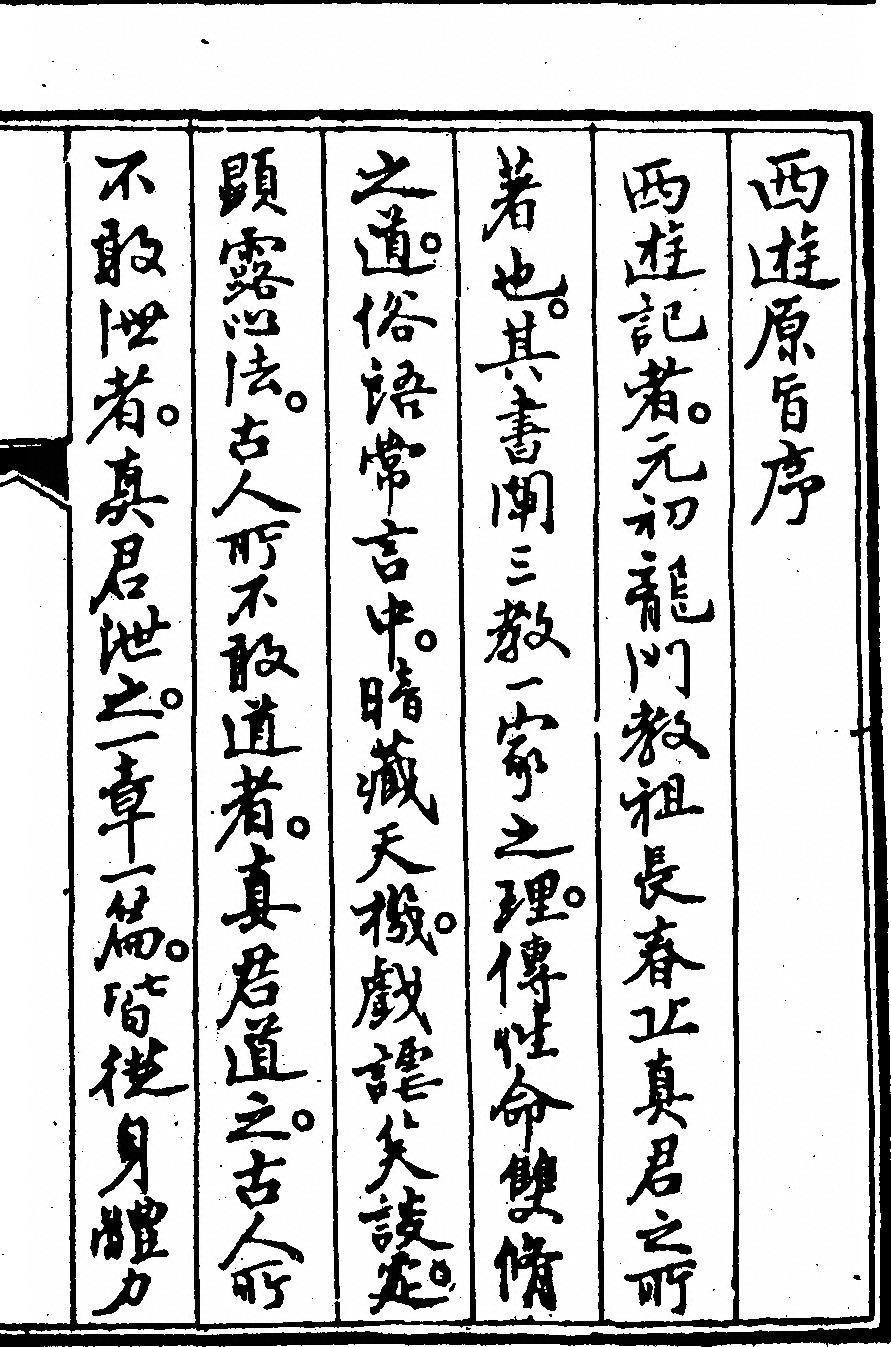 西遊原旨序
西遊記者。元初龍門教祖長春丘真君之所
著也。其書闡三教一家之理。傳性命雙脩
之道。俗語常言中。暗藏天機。戲謔笑談處。
顯露心法。古人所不敢道者。真君道之。古人所
不敢泄者。真君泄之。一章一篇。皆從身體力